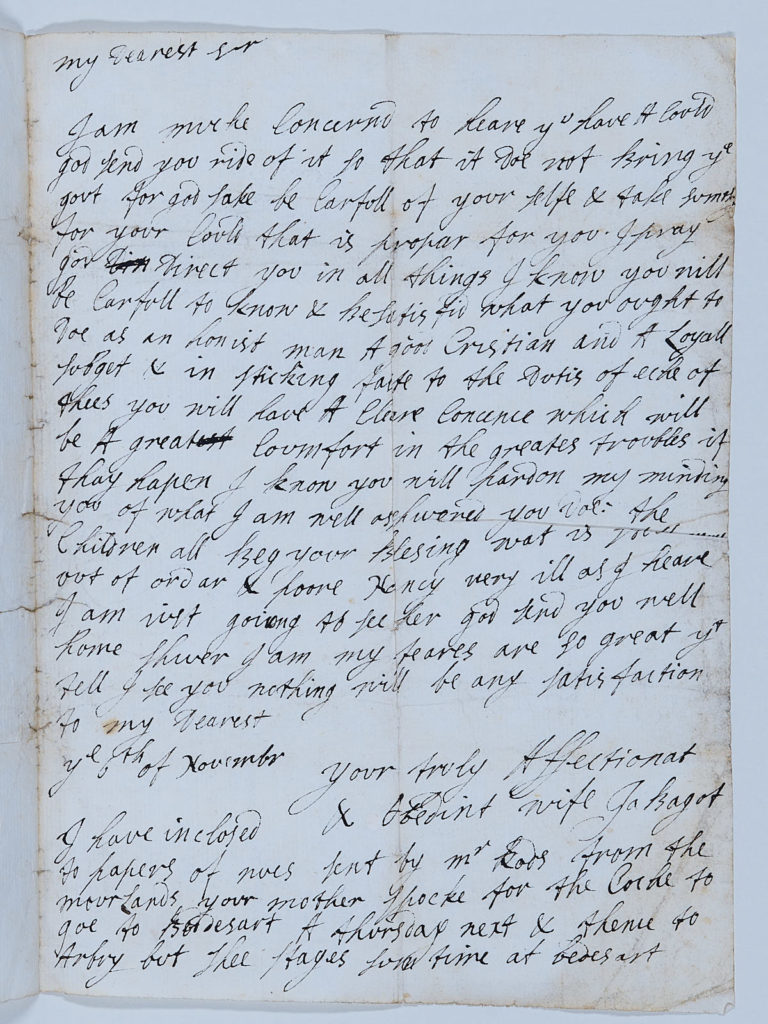 my Dearest sr
I am muche Concernd to heare yu have A Could
god send you ride of it so that it Doe not bring ye
gout for god sake be Carfoll of your selfe & take som
for your Could that is propar for you. I pray
god Direct you in all things I know you will
be Carfoll to know & be satisfid what you ought to
Doe as an honist man A good Cristian and A Loyall
subget & in sticking faite to the Dutis of eche of
thees you will have A Cleare Concunce which will
be A great Coumfort in the greates troubles if
thay hapen I know you will pardon my minding
you of what I am well ashuered you Doe: the
Children all beg your blesing wat is
out of ordar & poore Nancy very ill as I heare
I am iust going to see her god send you well
home shuer I am my feares are so great yt
tell I see you nothing will be any satisfaction
to my Dearest
ye 6th of Novembr your truly Affectionat
& Obedint wife Ja Bagot
I have inclosed
to papers of nues sent by mr from the
mourlands your mother spocke for the Coche to
goe to Bedesart A thursday next & thence to
Arbry but shee stages som time at bedesart